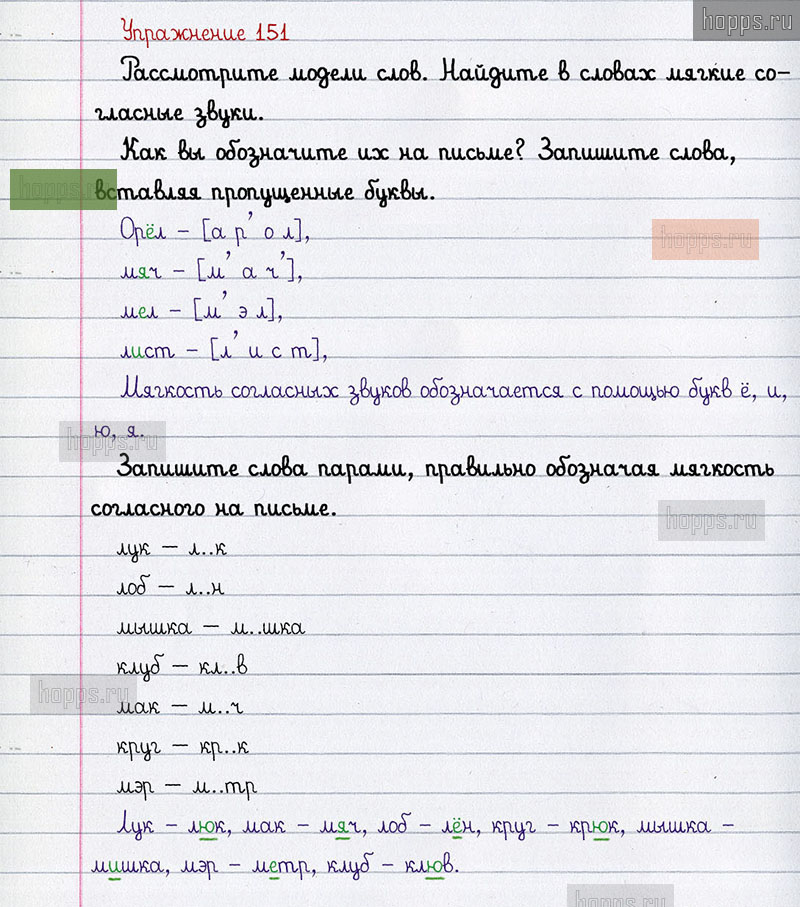 hopps.ru
Упражнение 151
Рассмотрите модели слов. Найдите в словах мягкие со-
гласные звуки.
Как вы обозначите их на письме? Запишите слова,
hopps.ru
вставляя пропущенные буквы.
Орёл – [а р' о л],
hopps.ru
мяч – [м' а ч'],
мел – [м' э л],
лист – [л' и с т],
Мягкость согласных звуков обозначается с помощью букв ё, и,
ю, я.
hopps.ru
Запишите слова парами, правильно обозначая мягкость
согласного на письме.
hopps.ru
лук – л..к
лоб – л..н
мышка – м..шка
клуб – кл..в
hopps.ru
мак – м..ч
круг – кр..к
мэр – м..тр
Лук – люк, мак – мяч, лоб – лён, круг – крюк, мышка –
мишка, мэр – метр, клуб – клюв.
hopps.ru